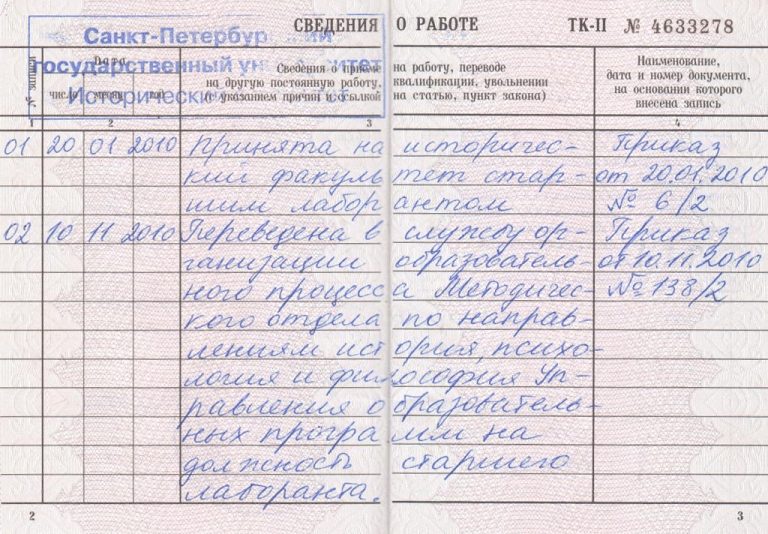 СВЕДЕНИЯ О РАБОТЕ ТК-II № 4633278
Санкт-Петербургский
государственный университет
Исторический
№ записи
Дата
число месяц год
Сведения о приеме на работу, переводе
на другую постоянную работу, квалификации, увольнении
(с указанием причин и ссылкой на статью, пункт закона)
Наименование,
дата и номер документа,
на основании которого
внесена запись
1 2 3 4
01 20 01 2010 Принята на историчес- Приказ
кий факультет стар- от 20.01.2010
шим лаборантом № 6/2
02 10 11 2010 Переведена в службу ор- Приказ
ганизации образователь- от 10.11.2010
ного процесса Методичес- № 138/2
кого отдела по направ-
лениям история, психо-
логия и философия Уп-
равления образователь-
ных программ на
должность старшего
лаборанта.
2 3